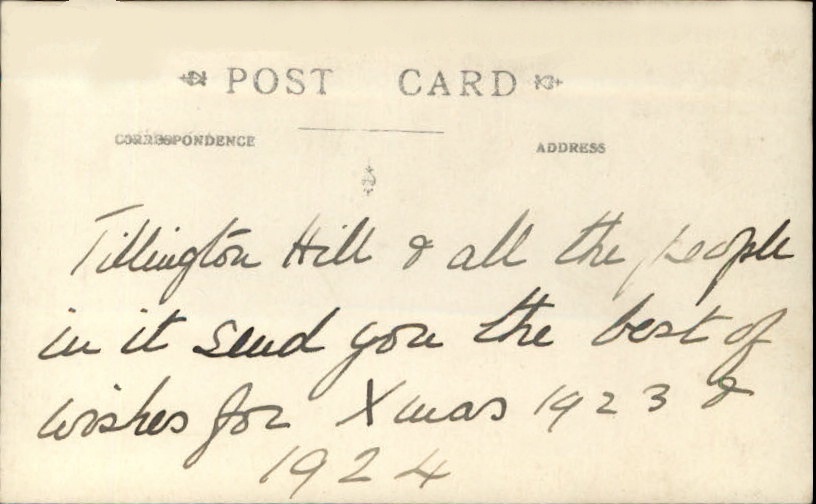 POST CARD
CORRESPONDENCE
ADDRESS
Tillington Hill & all the people
in it send you the best of
wishes for Xmas 1923 &
1924